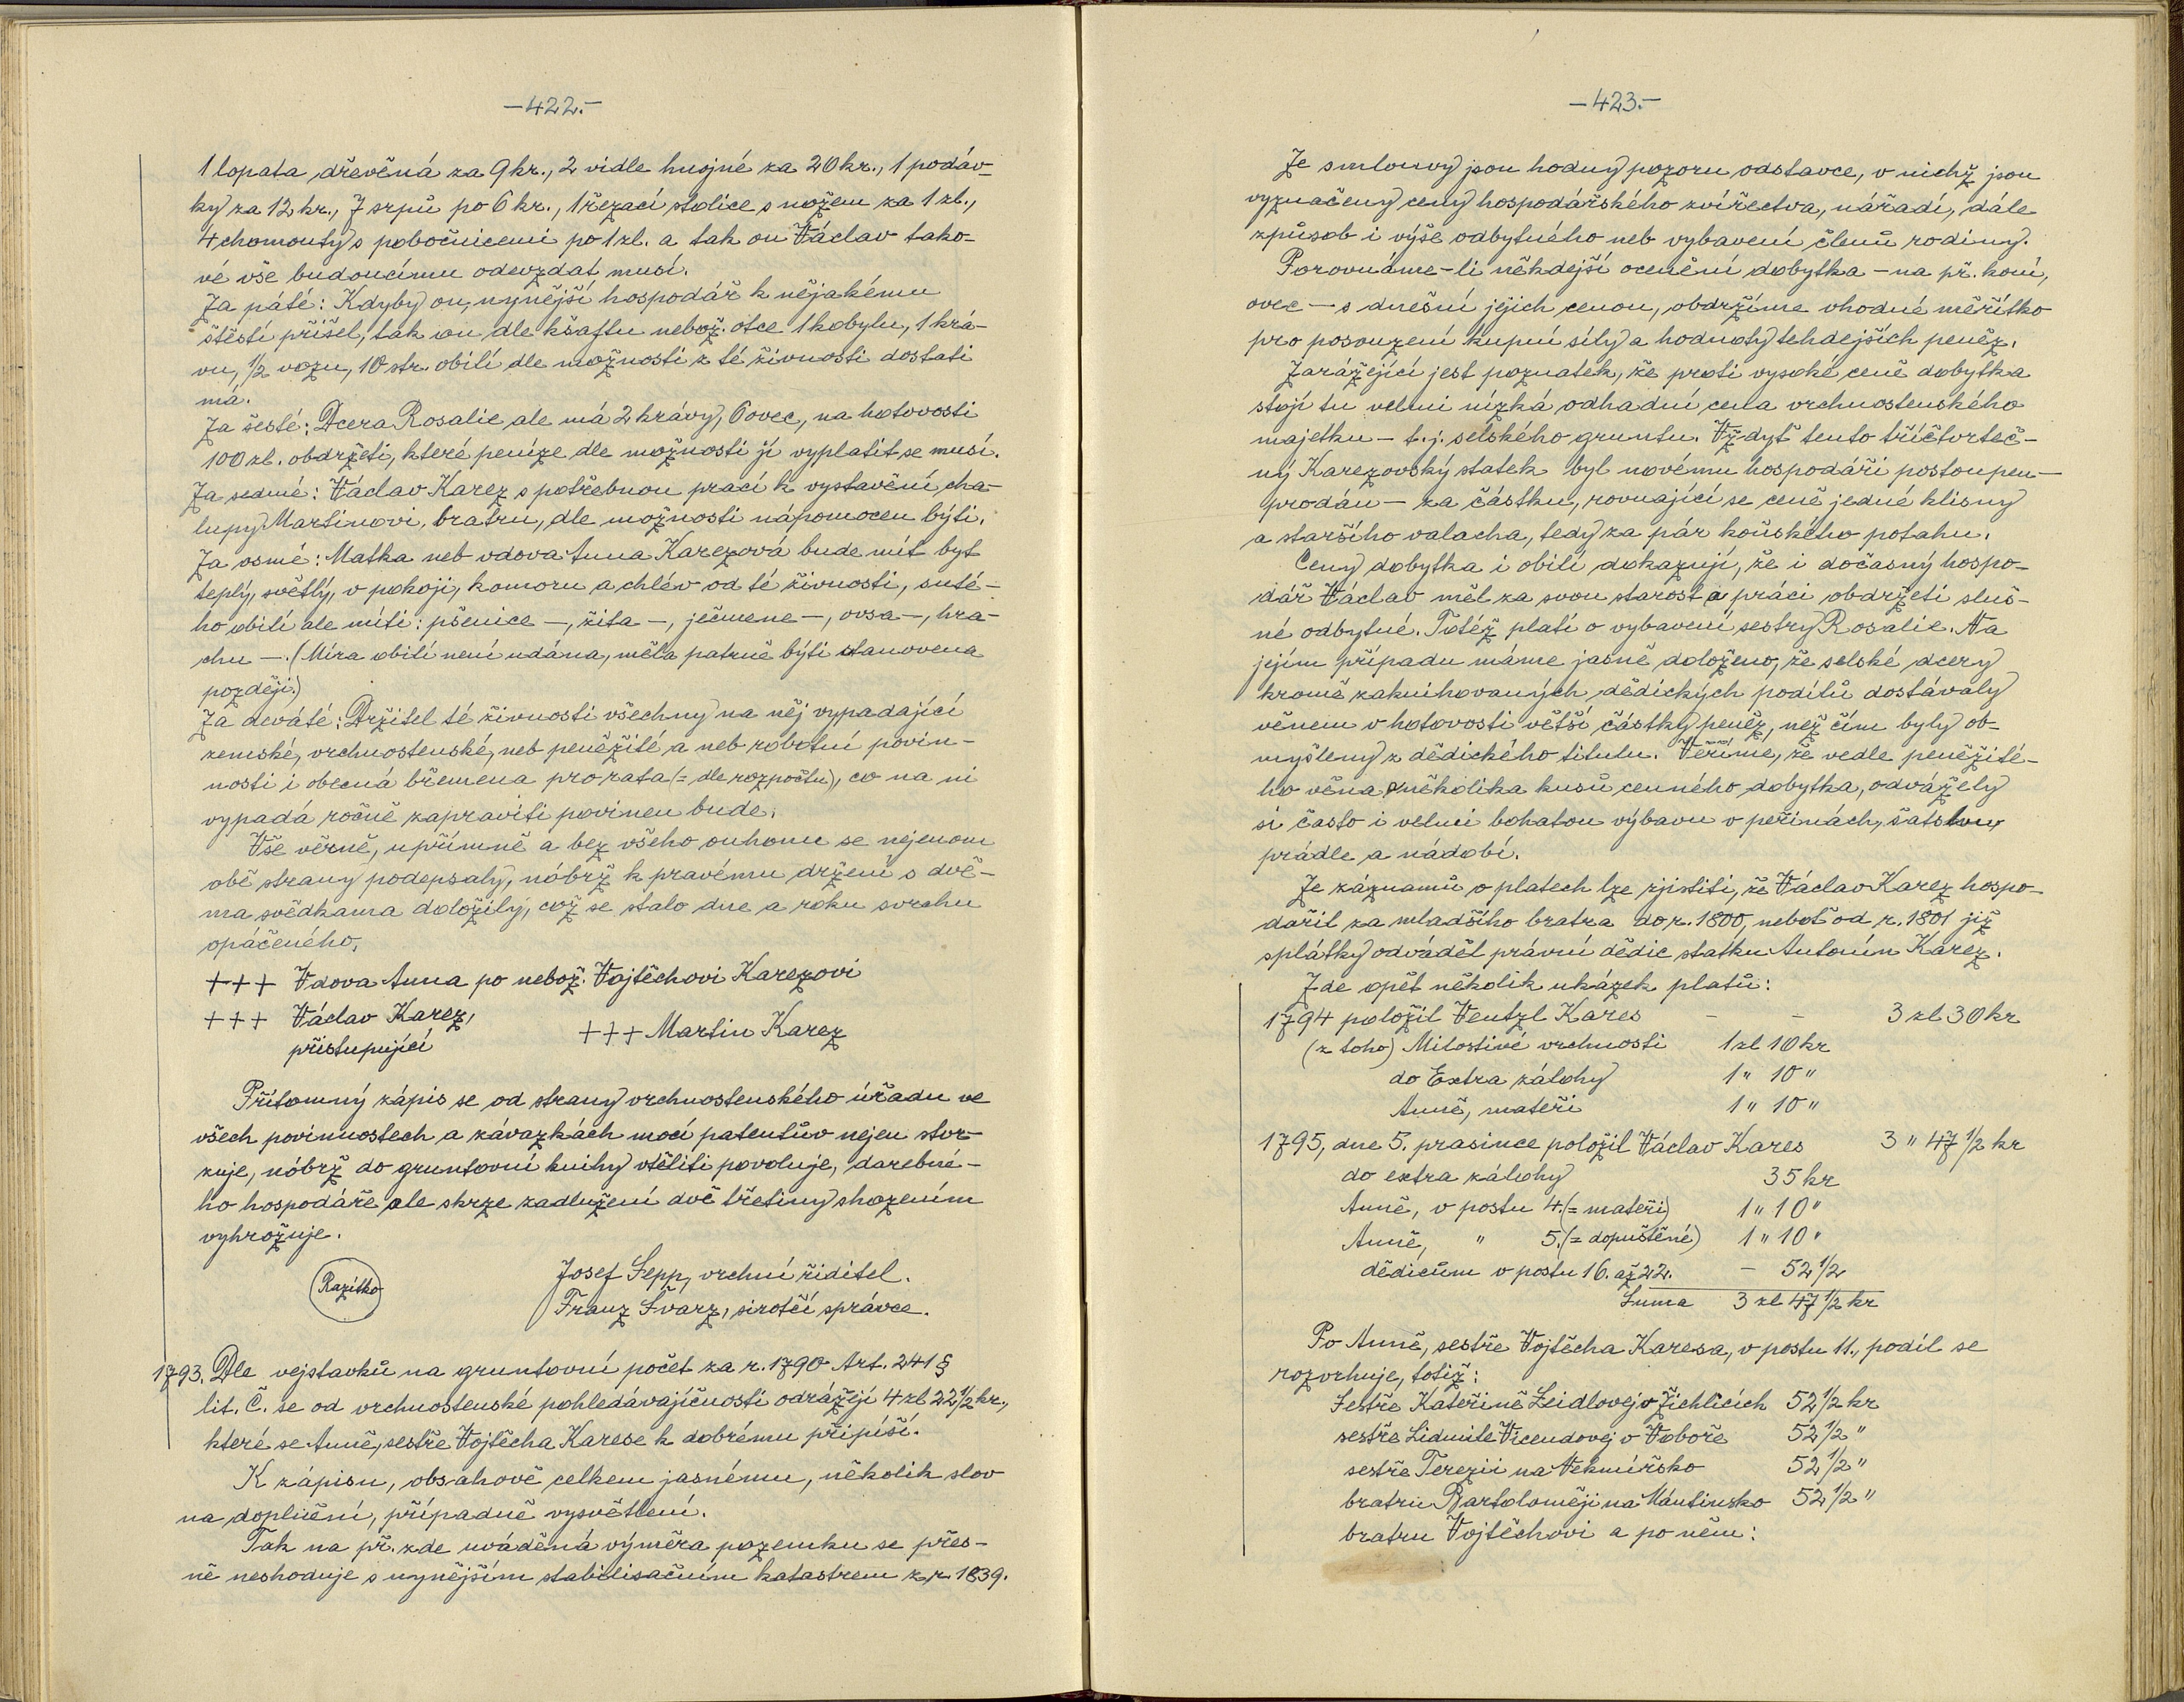 -422.-
1 lopata dřevěná za 9 kr., 2 vidle hnojné za 20 kr., 1 podáv-
ky za 12 kr., 7 srpů po 6 kr., 1 řezací stolice s nožem za 1 zl.,
4 chomouty s pobočnicemi po 1 zl. a tak on Václav tako-
vé vše budoucímu odevzdat musí.
Za páté: Kdyby on, nynější hospodář k nějakému
štěstí přišel, tak on dle kšaftu nebož. otce 1 kobylu, 1 krá-
vu, 1/2 vozu, 10 str. obilí dle možnosti z té živnosti dostati
má.
Za šesté: Dcera Rosalie ale má 2 krávy, 6 ovec, na hotovosti
100 zl. obdržeti, které peníze dle možnosti jí vyplatit se musí.
Za sedmé: Václav Karez s potřebnou prací k vystavění cha-
lupy Martinovi, bratru, dle možnosti nápomocen býti.
Za osmé: Matka neb vdova Anna Karezová bude mít byt
teplý, světlý, v pokoji, komoru a chlév od té živnosti, suté-
ho obilí ale míti: pšenice -, žita -, ječmene -, ovsa -, hra-
chu -. (Míra obilí není udána, měla patrně býti stanovena
později.)
Za deváté: Držitel té živnosti všechny na něj vypadající
zemské, vrchnostenské, neb peněžité a neb robotní povin-
nosti i obecná břemena pro rata (= dle rozpočtu), co na ni
vypadá ročně zapraviti povinen bude.
Vše věrně, upřímně a bez všeho ouhonu se nejenom
obě strany podepsaly, nóbrž k pravému držení s dvě-
ma svědkama doložily, což se stalo dne a roku svrchu
opáčeného.
+++ Vdova Anna po nebož. Vojtěchovi Karezovi
+++ Václav Karez,
přistupující
+++ Martin Karez
Přítomný zápis se od strany vrchnostenského úřadu ve
všech povinnostech a závazkách mocí patentův nejen stvr-
zuje, nóbrž do gruntovní knihy vtěliti povoluje, darebné-
ho hospodáře ale skrze zadlužení dvě třetiny shozením
vyhrožuje.
Razítko
Josef Sepp, vrchní řiditel.
Franz Švarz, sirotčí správce.
1793. Dle vejstavků na gruntovní počet za r. 1790 Art. 241 §
lit. Č. se od vrchnostenské pohledávajíčnosti odrážejí 4 zl 22 1/2 kr.,
které se Anně, sestře Vojtěcha Karese k dobrému připíší.
K zápisu, obsahově celkem jasnému, několik slov
na doplnění, případně vysvětlení.
Tak na př. zde uváděná výměra pozemku se přes-
ně neshoduje s nynějším stabilisačním katastrem z r. 1839.
-423.-
Ze smlouvy jsou hodny pozoru odstavce, v nichž jsou
vyznačeny ceny hospodářského zvířectva, nářadí, dále
způsob i výše odbytného neb vybavení členů rodiny.
Porovnáme-li někdejší ocenění dobytka - na př. koní,
ovec - s dnešní jejich cenou, obdržíme vhodné měřítko
pro posouzení kupní síly a hodnoty tehdejších peněz.
Zarážející jest poznatek, že proti vysoké ceně dobytka
stojí tu velmi nízká odhadní cena vrchnostenského
majetku - t. j. selského gruntu. Vždyť tento tříčtvrteč-
ný Karezovský statek byl novému hospodáři postoupen -
prodán - za částku, rovnající se ceně jedné klisny
a staršího valacha, tedy za pár koňského potahu.
Ceny dobytka i obilí dokazují, že i dočasný hospo-
dář Václav měl za svou starost a práci obdržeti sluš-
né odbytné. Totéž platí o vybavení sestry Rosalie. Na
jejím případu máme jasně doloženo, že selské dcery
kromě zaknihovaných dědických podílů dostávaly
věnem v hotovosti větší částky peněz, než čím byly ob-
myšleny z dědického titulu. Věříme, že vedle peněžité-
ho věna a několika kusů cenného dobytka, odvážely
si často i velmi bohatou výbavu v peřinách, šatstvu,
prádle a nádobí.
Ze záznamů o platech lze zjistiti, že Václav Karez hospo-
dařil za mladšího bratra do r. 1800, neboť od r. 1801 již
splátky odváděl právní dědic statku Antonín Karez.
Zde opět několik ukázek platů:
1794 položil Ventzl Kares - - 3 zl 30 kr
(z toho) Milostivé vrchnosti 1 zl 10 kr
do Extra zálohy 1 " 10 "
Anně, mateři 1 " 10 "
1795, dne 5. prasince položil Václav Kares 3 " 47 1/2 kr
do extra zálohy 35 kr
Anně, v postu 4. (= mateři) 1 " 10 "
Anně, " 5. (= dopuštěné) 1 " 10 "
dědicům v postu 16. až 22. - 52 1/2
Suma 3 zl 47 1/2 kr
Po Anně, sestře Vojtěcha Karesa, v postu 11., podíl se
rozvrhuje, totiž:
Sestře Kateřině Zeidlovej v Žichlicích 52 1/2 kr
sestře Lidmile Vicendovej v Voboře 52 1/2 "
sestře Terezii na Nekmířsko 52 1/2 "
bratru Bartoloměji na Mántinsko 52 1/2 "
bratru Vojtěchovi a po něm: